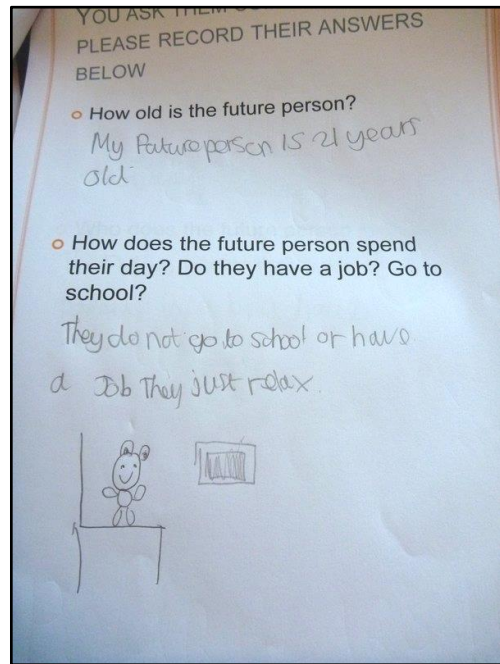 YOU ASK THEM
PLEASE RECORD THEIR ANSWERS
BELOW
How old is the future person?
My Future person is 21 years
old
How does the future person spend
their day? Do they have a job? Go to
school?
They do not go to school or have
a Job They just relax.